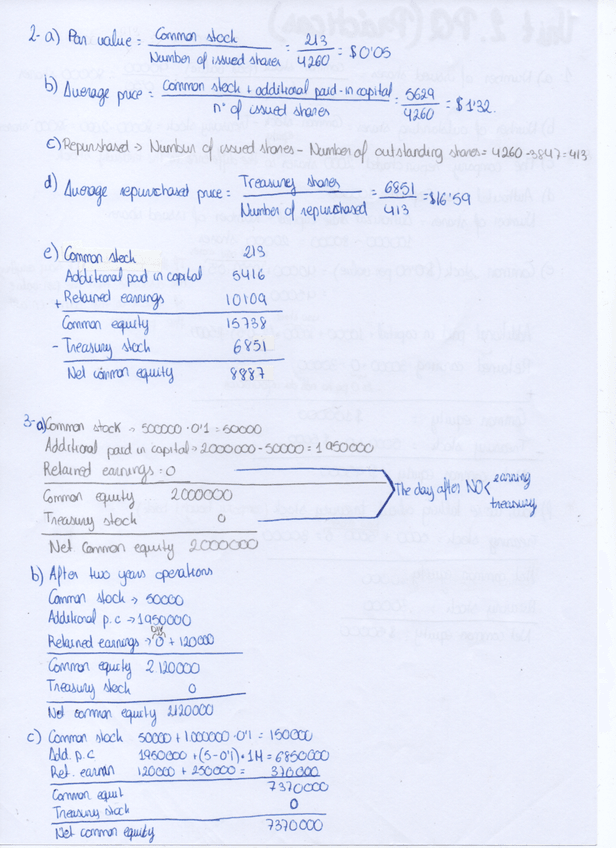 2-a) Par value = Common stock / Number of issued shares = 213 / 4260 = $0'05
b) Average price = Common stock + additional paid-in capital / nº of issued shares = 5629 / 4260 = $1'32.
c) Repurshased → Number of issued shares - Number of outstanding shares = 4260 - 3847 = 413
d) Average repurchased price = Treasury shares / Number of repurchased = 6851 / 413 = $16'59
e) Common stock 213
Additional paid in capital 5416
+ Retained earnings 10109
Common equity 15738
- Treasury stock 6851
Net common equity 8887
3-a) Common stock → 500000 · 0'1 = 50000
Additional paid in capital → 2000000 - 50000 = 1950000
Retained earnings = 0
Common equity 2000000
Treasury stock 0
Net common equity 2000000
The day after NO < earning
treasury
b) After two years operations
Common stock → 50000
Additional p.c → 1950000
Retained earnings → 0 + 120000
Common equity 2120000
Treasury stock 0
Net common equity 2120000
c) Common stock 50000 + 1000000 · 0'1 = 150000
Add. p.c 1950000 + (5-0'1) · 1M = 6850000
Ret. earnin 120000 + 250000 = 370000
Common equit 7370000
Treasury stock 0
Net common equity 7370000